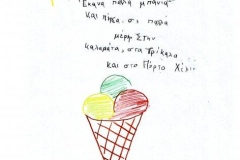 Έκανα πολλά μπάνια
και πήγα σε πολλά
μέρη Στην
καλαμάτα, στα Τρίκαλα
και στο Πόρτο Χέλι